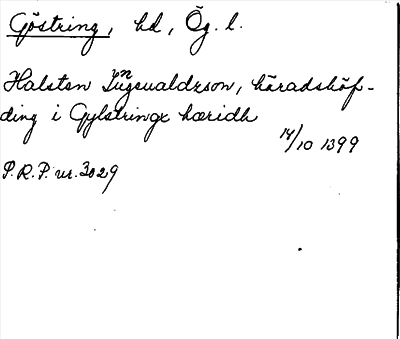 Göstring, hd, Ög. l.
Halsten Ingeualdzson, häradshöf-
ding i Gylstringx hæridh
14/10 1399
P.R.P. nr. 3029